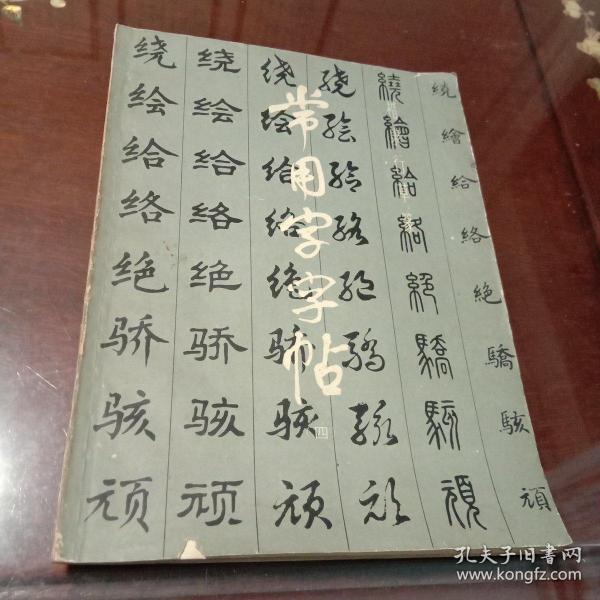 常用字字帖
四
绕 绕 绕 绕 繞 繞
绘 绘 绘 绘 繪 繪
给 给 给 给 給 給
络 络 络 络 絡 絡
绝 绝 绝 绝 絕 絶
骄 骄 骄 驕 驕 驕
骇 骇 骇 骇 駭 駭
顽 顽 顽 顽 頑 頑
孔夫子旧书网
www.kongfz.com